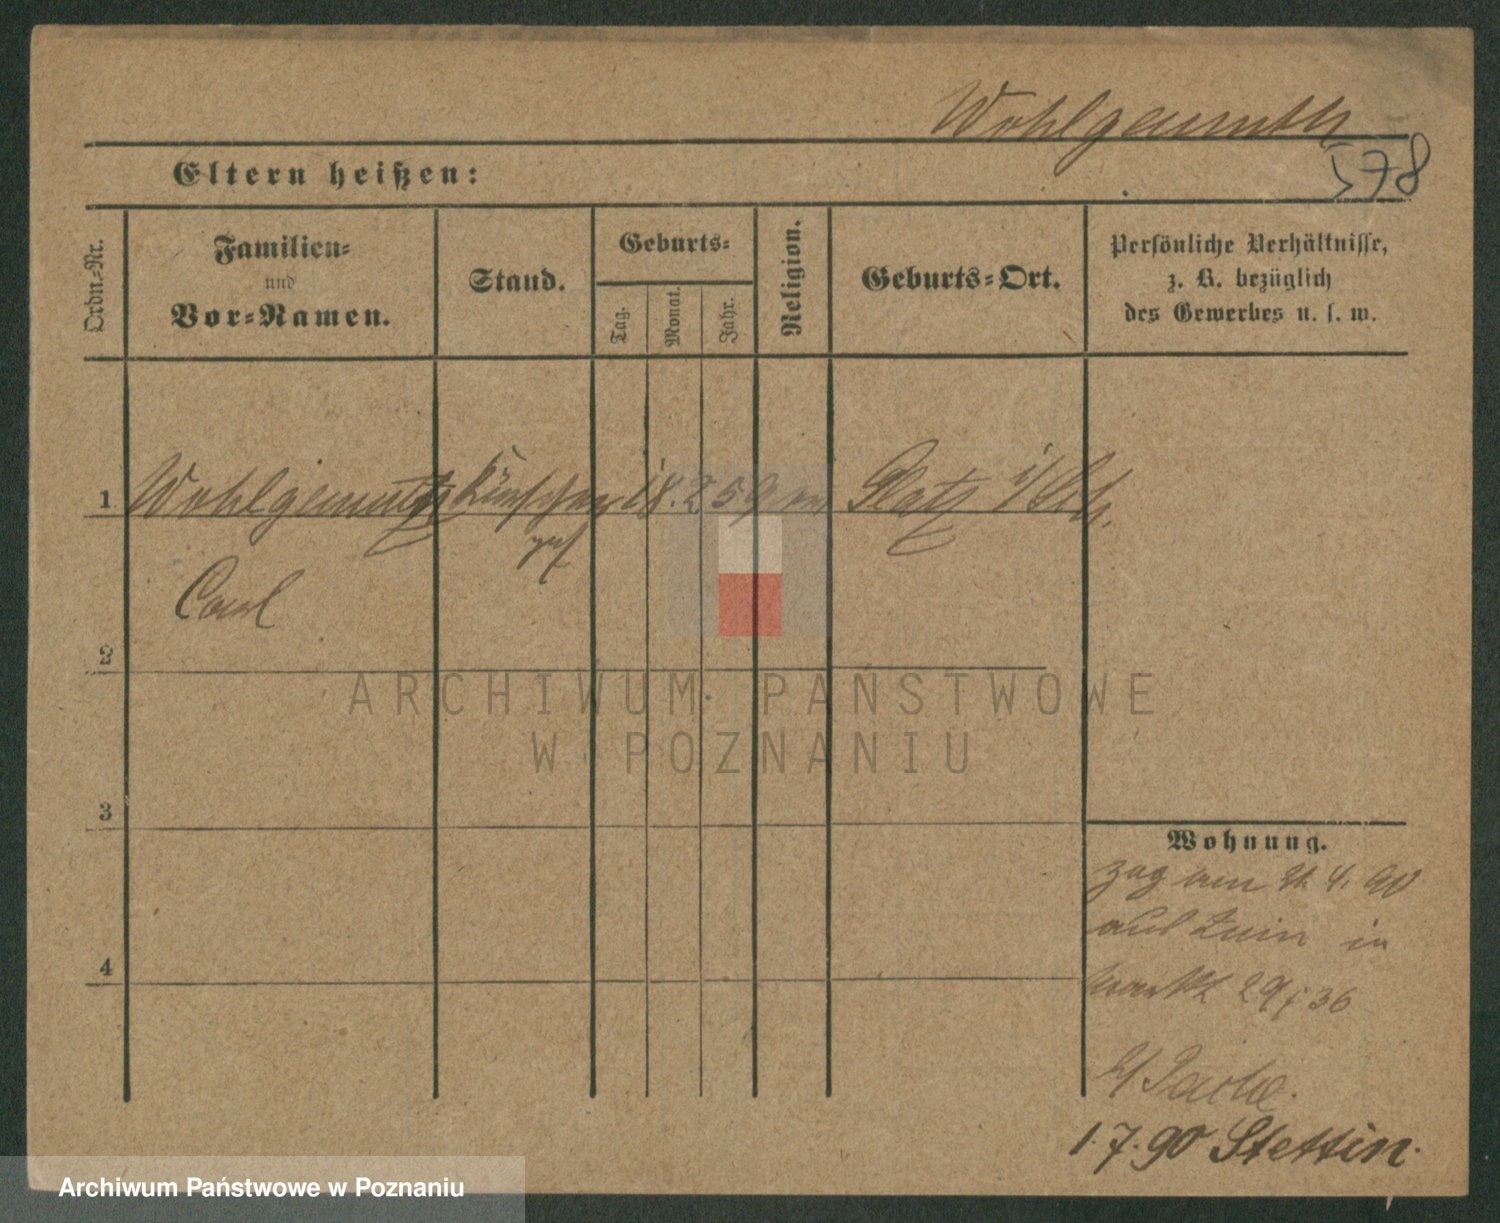 Wohlgemuth
578
Eltern heißen:
Ordn.-Nr.
Familien-
und
Vor-Namen.
Stand.
Geburts-
Tag.
Monat.
Jahr.
Religion.
Geburts-Ort.
Persönliche Verhältnisse,
z. B. bezüglich
des Gewerbes u. s. w.
1 Wohlgemuth Kürschner 18. 2 59 ev Glatz i/Sch.
Carl
2
ARCHIWUM PAŃSTWOWE
W POZNANIU
3
Wohnung.
zog am 21. 4. 90
aus Znin in
Markt 29 / 36
4
b/
1. 7. 90 Stettin.
Archiwum Państwowe w Poznaniu